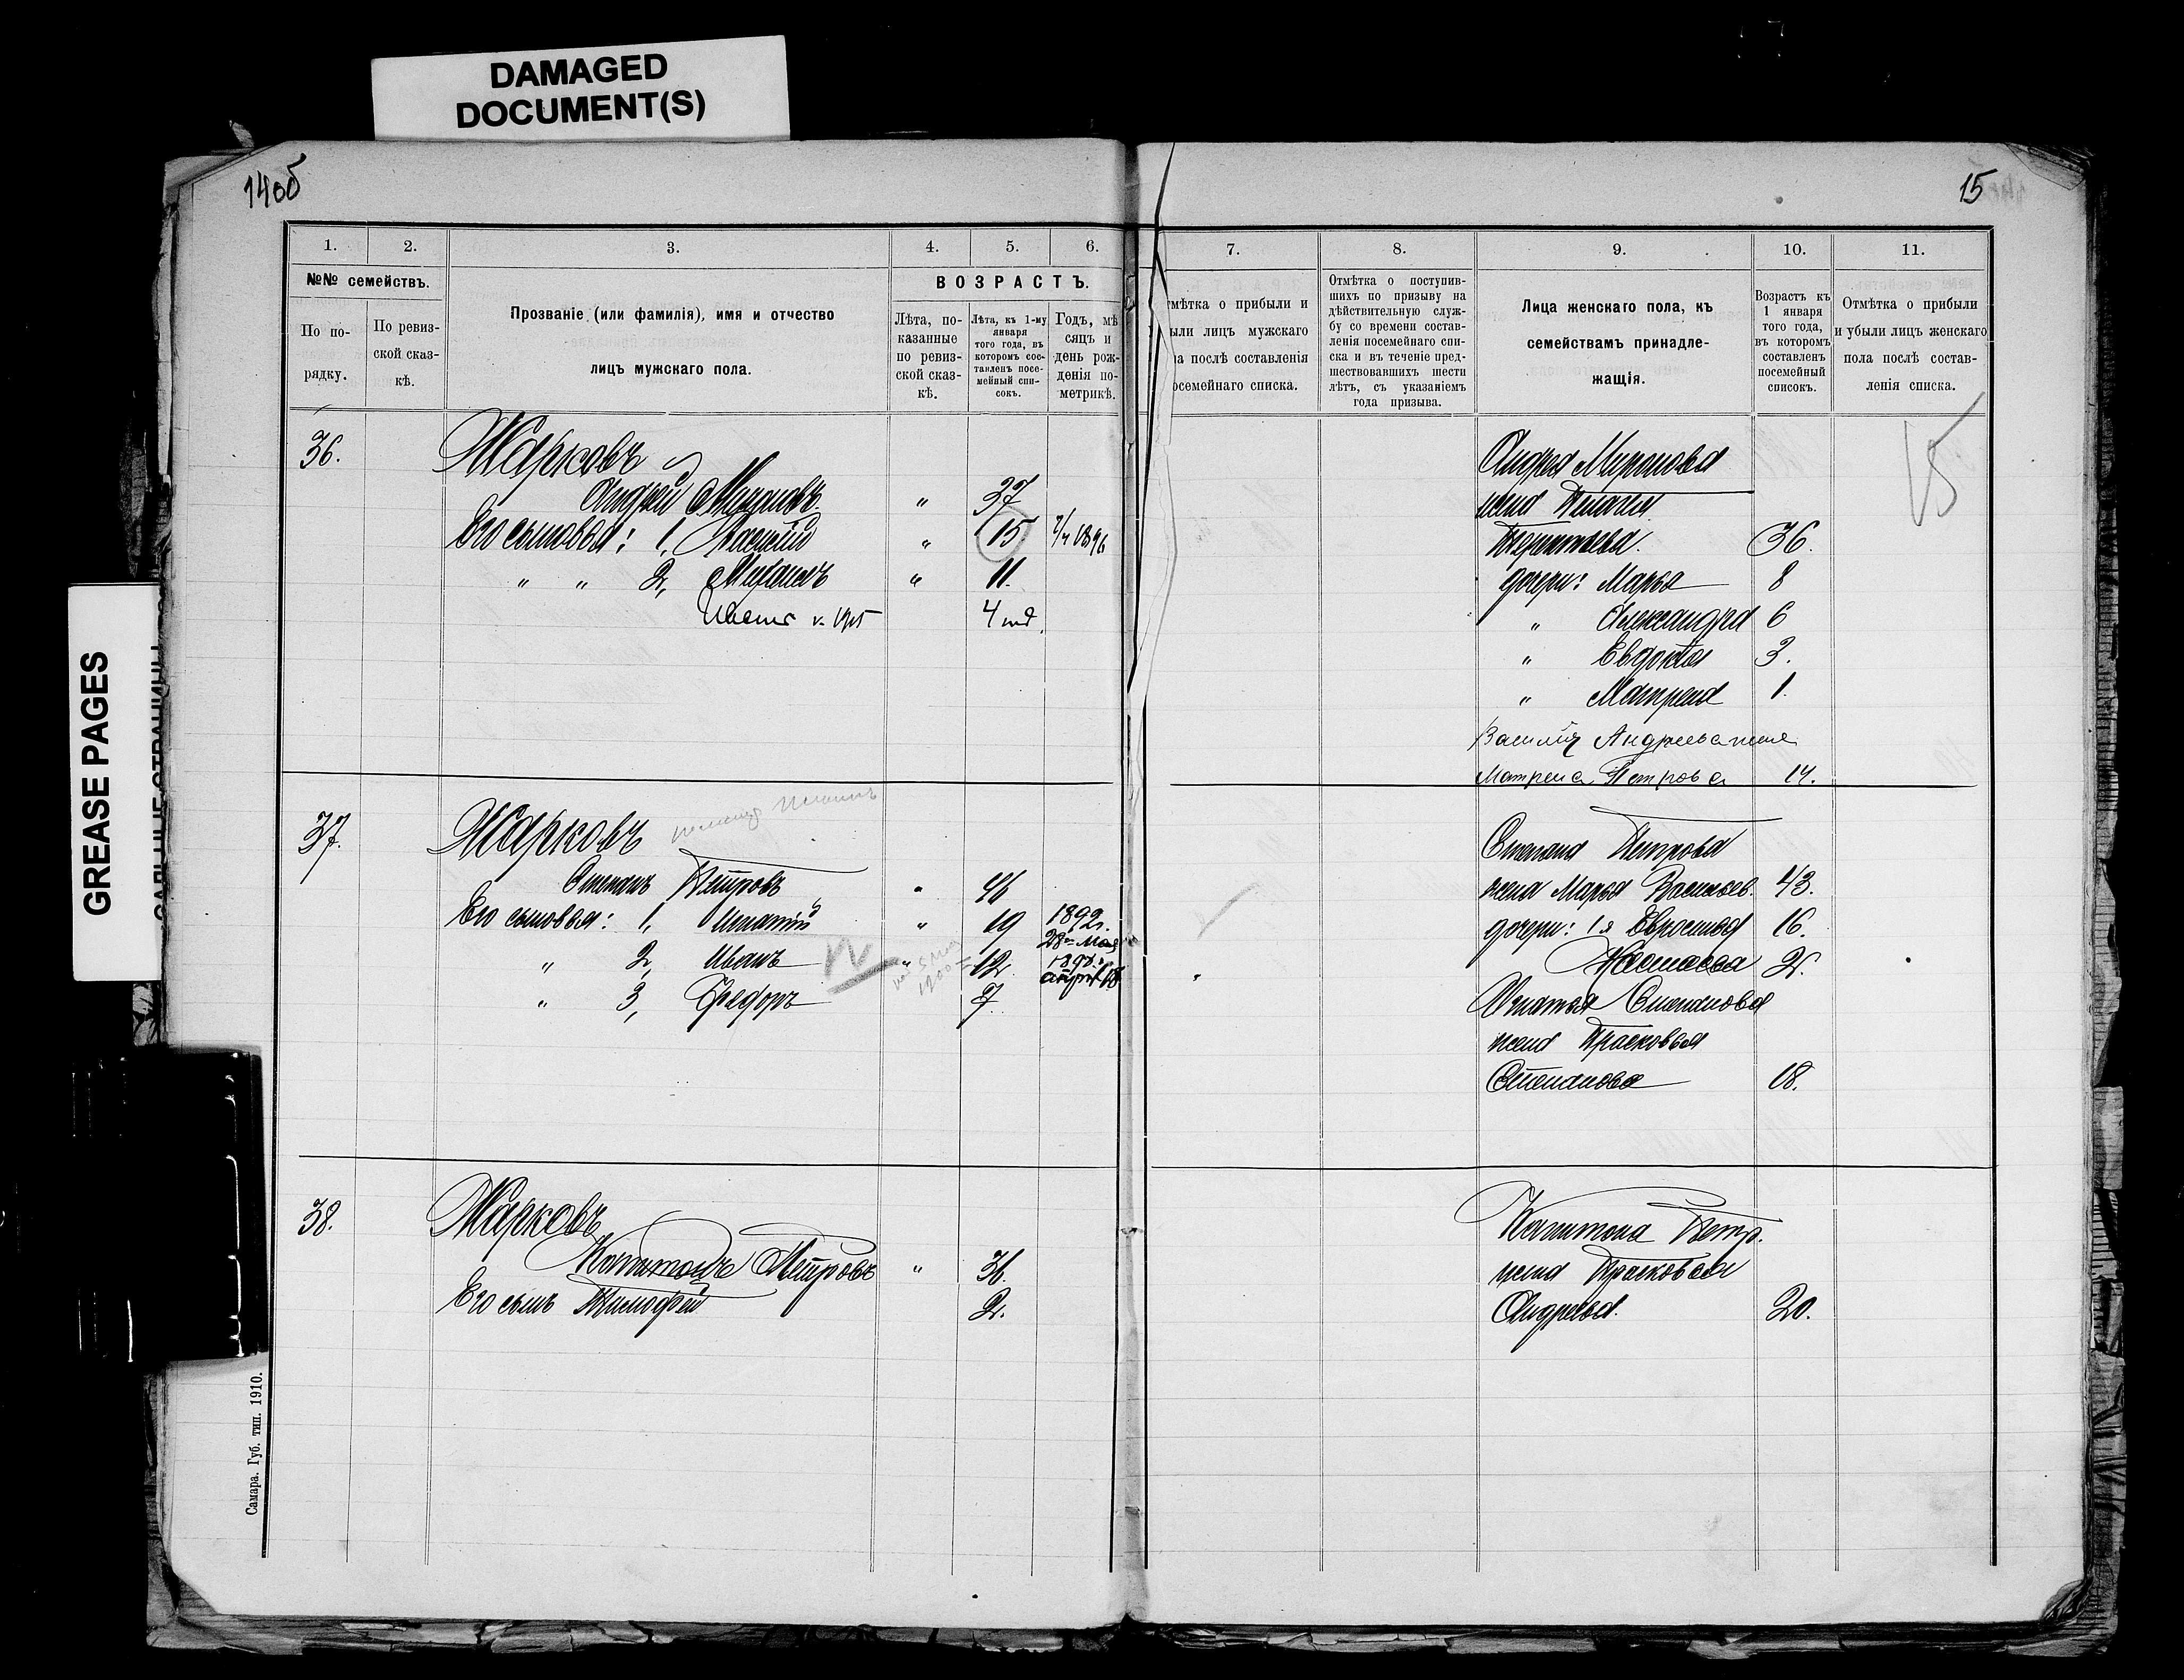 DAMAGED
DOCUMENT(S)
GREASE PAGES
14об
15
1.
2.
3.
4.
5.
6.
7.
8.
9.
10.
11.
№№ семействъ.
По по-
рядку.
По ревиз-
ской сказ-
кѣ.
Прозваніе (или фамилія), имя и отчество
лицъ мужскаго пола.
ВОЗРАСТЪ.
Лѣта, по-
казанные
по ревиз-
ской сказ-
кѣ.
Лѣта, къ 1-му
января
того года, въ
которомъ сос-
тавленъ посе-
мейный спи-
сокъ.
Годъ, мѣ
сяцъ и
день рож-
денія по-
метрикѣ.
мѣтка о прибыли и
ыли лицъ мужскаго
а послѣ составленія
осемейнаго списка.
Отмѣтка о поступив-
шихъ по призыву на
дѣйствительную служ-
бу со времени состав-
ленія посемейнаго спи-
ска и въ теченіе пред-
шествовавшихъ шести
лѣтъ, съ указаніемъ
года призыва.
Лица женскаго пола, къ
семействамъ принадле-
жащія.
Возрастъ къ
1 января
того года,
въ которомъ
составленъ
посемейный
списокъ.
Отмѣтка о прибыли
и убыли лицъ женскаго
пола послѣ состав-
ленія списка.
36.
Жарковъ
Андрей Мироновъ " 37
Его сыновья: 1, Василій " 15 1896
" " 2, Михаилъ " 11.
4
Андрея Миронова
жена Пелагея
Терентьева. 36.
дочери: Марья 8
" Александра 6
" Евдокія 3.
" Матрена 1.
Василія Андреева жена
Матрена Петрова 14.
15
37.
Жарковъ
Степанъ Петровъ " 46
Его сыновья: 1, Игнатій " 19 1892 г.
28 Мая
" 2, Иванъ " 12 1898 г.
апрѣл 18
" 3, Федоръ 7.
Степана Петрова
жена Марья Васильев. 43.
дочери: 1я Евросинья 16.
Настасья 2.
Игнатья Степанова
жена Прасковья
Степанова 18.
38.
Жарковъ
Капитонъ Петровъ " 36.
Его сынъ Тимофей 2.
Капитона Петр.
жена Прасковья
Андреева. 20.
Самара. Губ. тип. 1910.